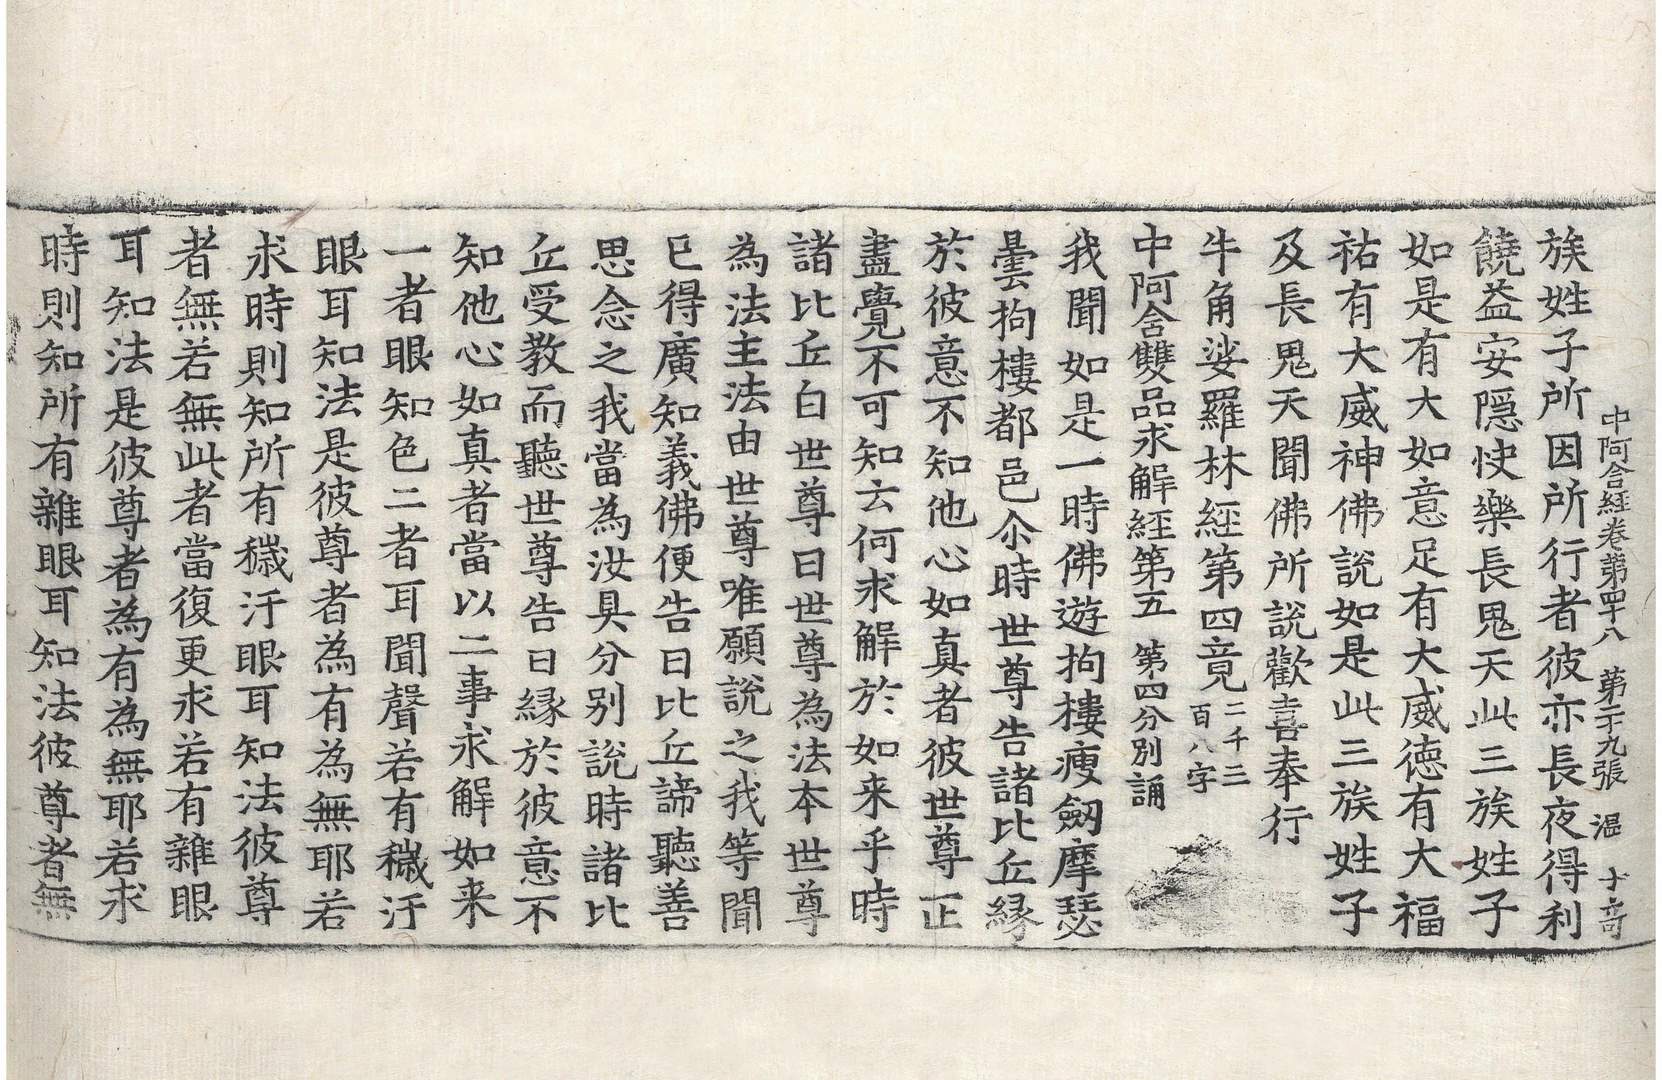 中阿含經卷第四十八　第二十九張　温　卞奇
族姓子所因所行者彼亦長夜得利
饒益安隱快樂長鬼天此三族姓子
如是有大如意足有大威德有大福
祐有大威神佛說如是此三族姓子
及長鬼天聞佛所說歡喜奉行
牛角娑羅林經第四竟二千三百八字
中阿含雙品求解經第五　第四分別誦
我聞如是一時佛遊拘樓瘦劔摩瑟
曇拘樓都邑尒時世尊告諸比丘緣
於彼意不知他心如真者彼世尊正
盡覺不可知云何求解於如来乎時
諸比丘白世尊曰世尊為法本世尊
為法主法由世尊唯願說之我等聞
已得廣知義佛便告曰比丘諦聽善
思念之我當為汝具分別說時諸比
丘受教而聽世尊告曰緣於彼意不
知他心如真者當以二事求解如来
一者眼知色二者耳聞聲若有穢汙
眼耳知法是彼尊者為有為無耶若
求時則知所有穢汙眼耳知法彼尊
者無若無此者當復更求若有雜眼
耳知法是彼尊者為有為無耶若求
時則知所有雜眼耳知法彼尊者無